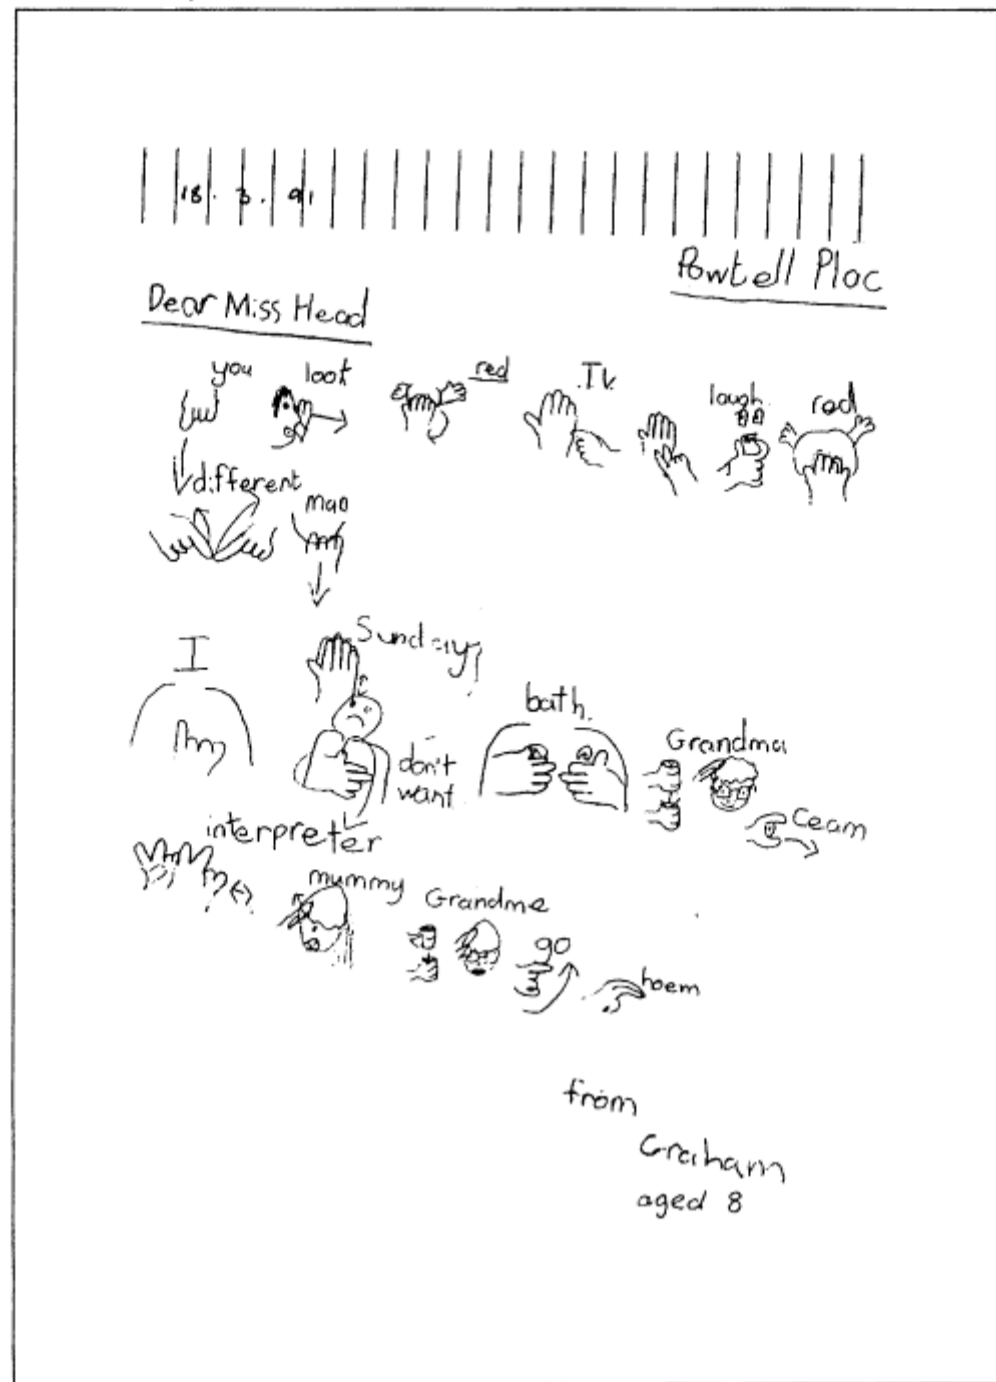 18. 3. 91
Powtell Ploc
Dear Miss Head
you look red T.V. laugh red
different man
I Sunday?
don't want bath. Grandma
Ceam
interpreter
mummy Grandme go hoem
from
Graham
aged 8